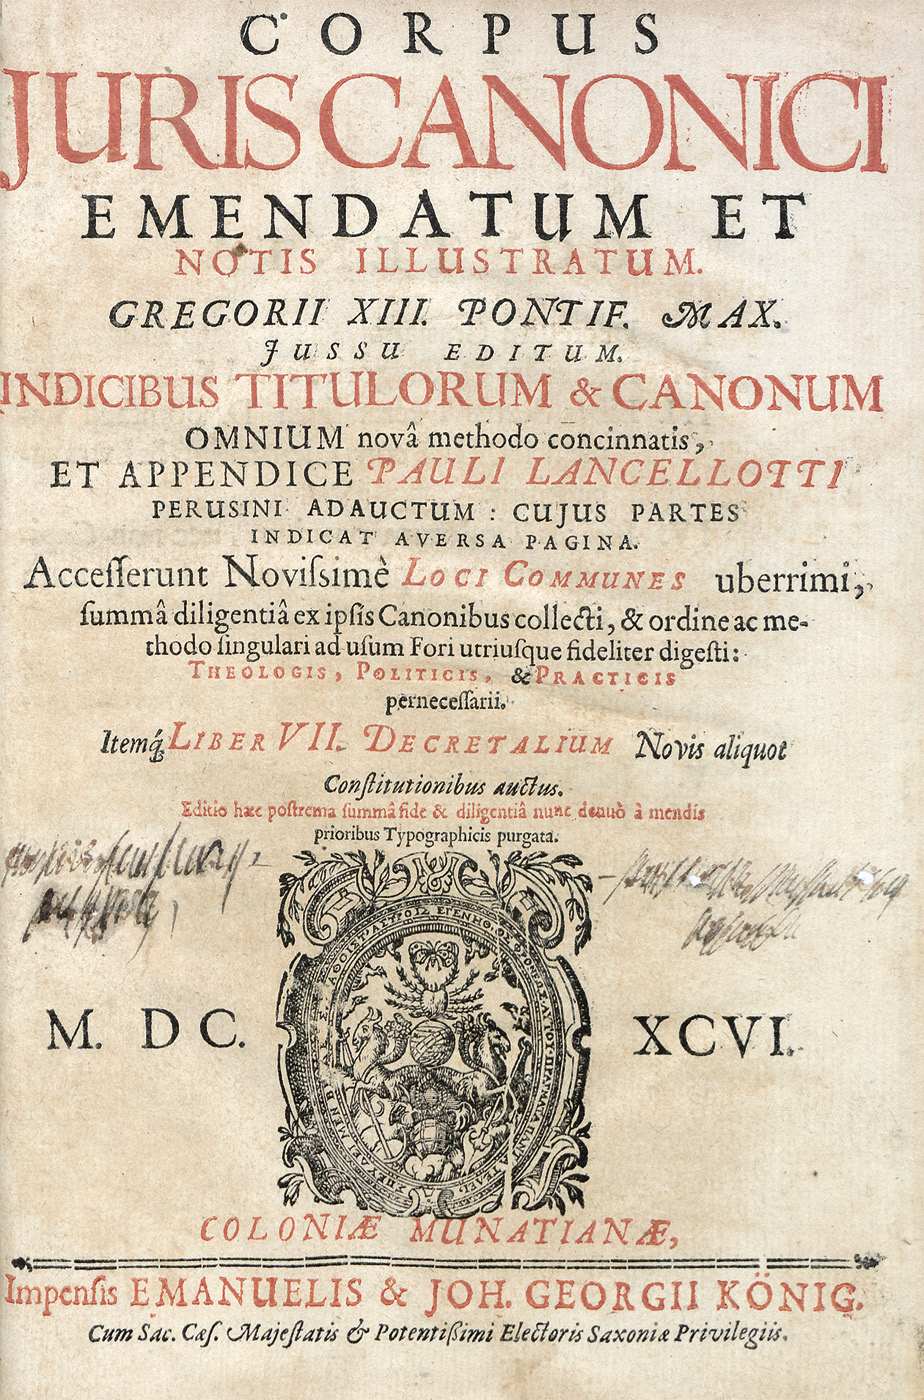 CORPUS
JURIS CANONICI
EMENDATUM ET
NOTIS ILLUSTRATUM.
GREGORII XIII. PONTIF. MAX.
JUSSU EDITUM.
INDICIBUS TITULORUM & CANONUM
OMNIUM novâ methodo concinnatis,
ET APPENDICE PAULI LANCELLOTTI
PERUSINI ADAUCTUM: CUJUS PARTES
INDICAT AVERSA PAGINA.
Accesſerunt Noviſsimè LOCI COMMUNES uberrimi,
ſummâ diligentiâ ex ipſis Canonibus collecti, & ordine ac me-
thodo ſingulari ad uſum Fori utriuſque fideliter digeſti:
THEOLOGIS, POLITICIS, & PRACTICIS
perneceſſarii.
Itemq́; LIBER VII. DECRETALIUM Novis aliquot
Conſtitutionibus auctus.
Editio hæc poſtrema ſummâ fide & diligentiâ nunc denuò à mendis
prioribus Typographicis purgata.
M. DC. XCVI.
COLONIÆ MUNATIANÆ,
Impenſis EMANUELIS & JOH. GEORGII KÖNIG.
Cum Sac. Cæſ. Majeſtatis & Potentißimi Electoris Saxoniæ Privilegiis.